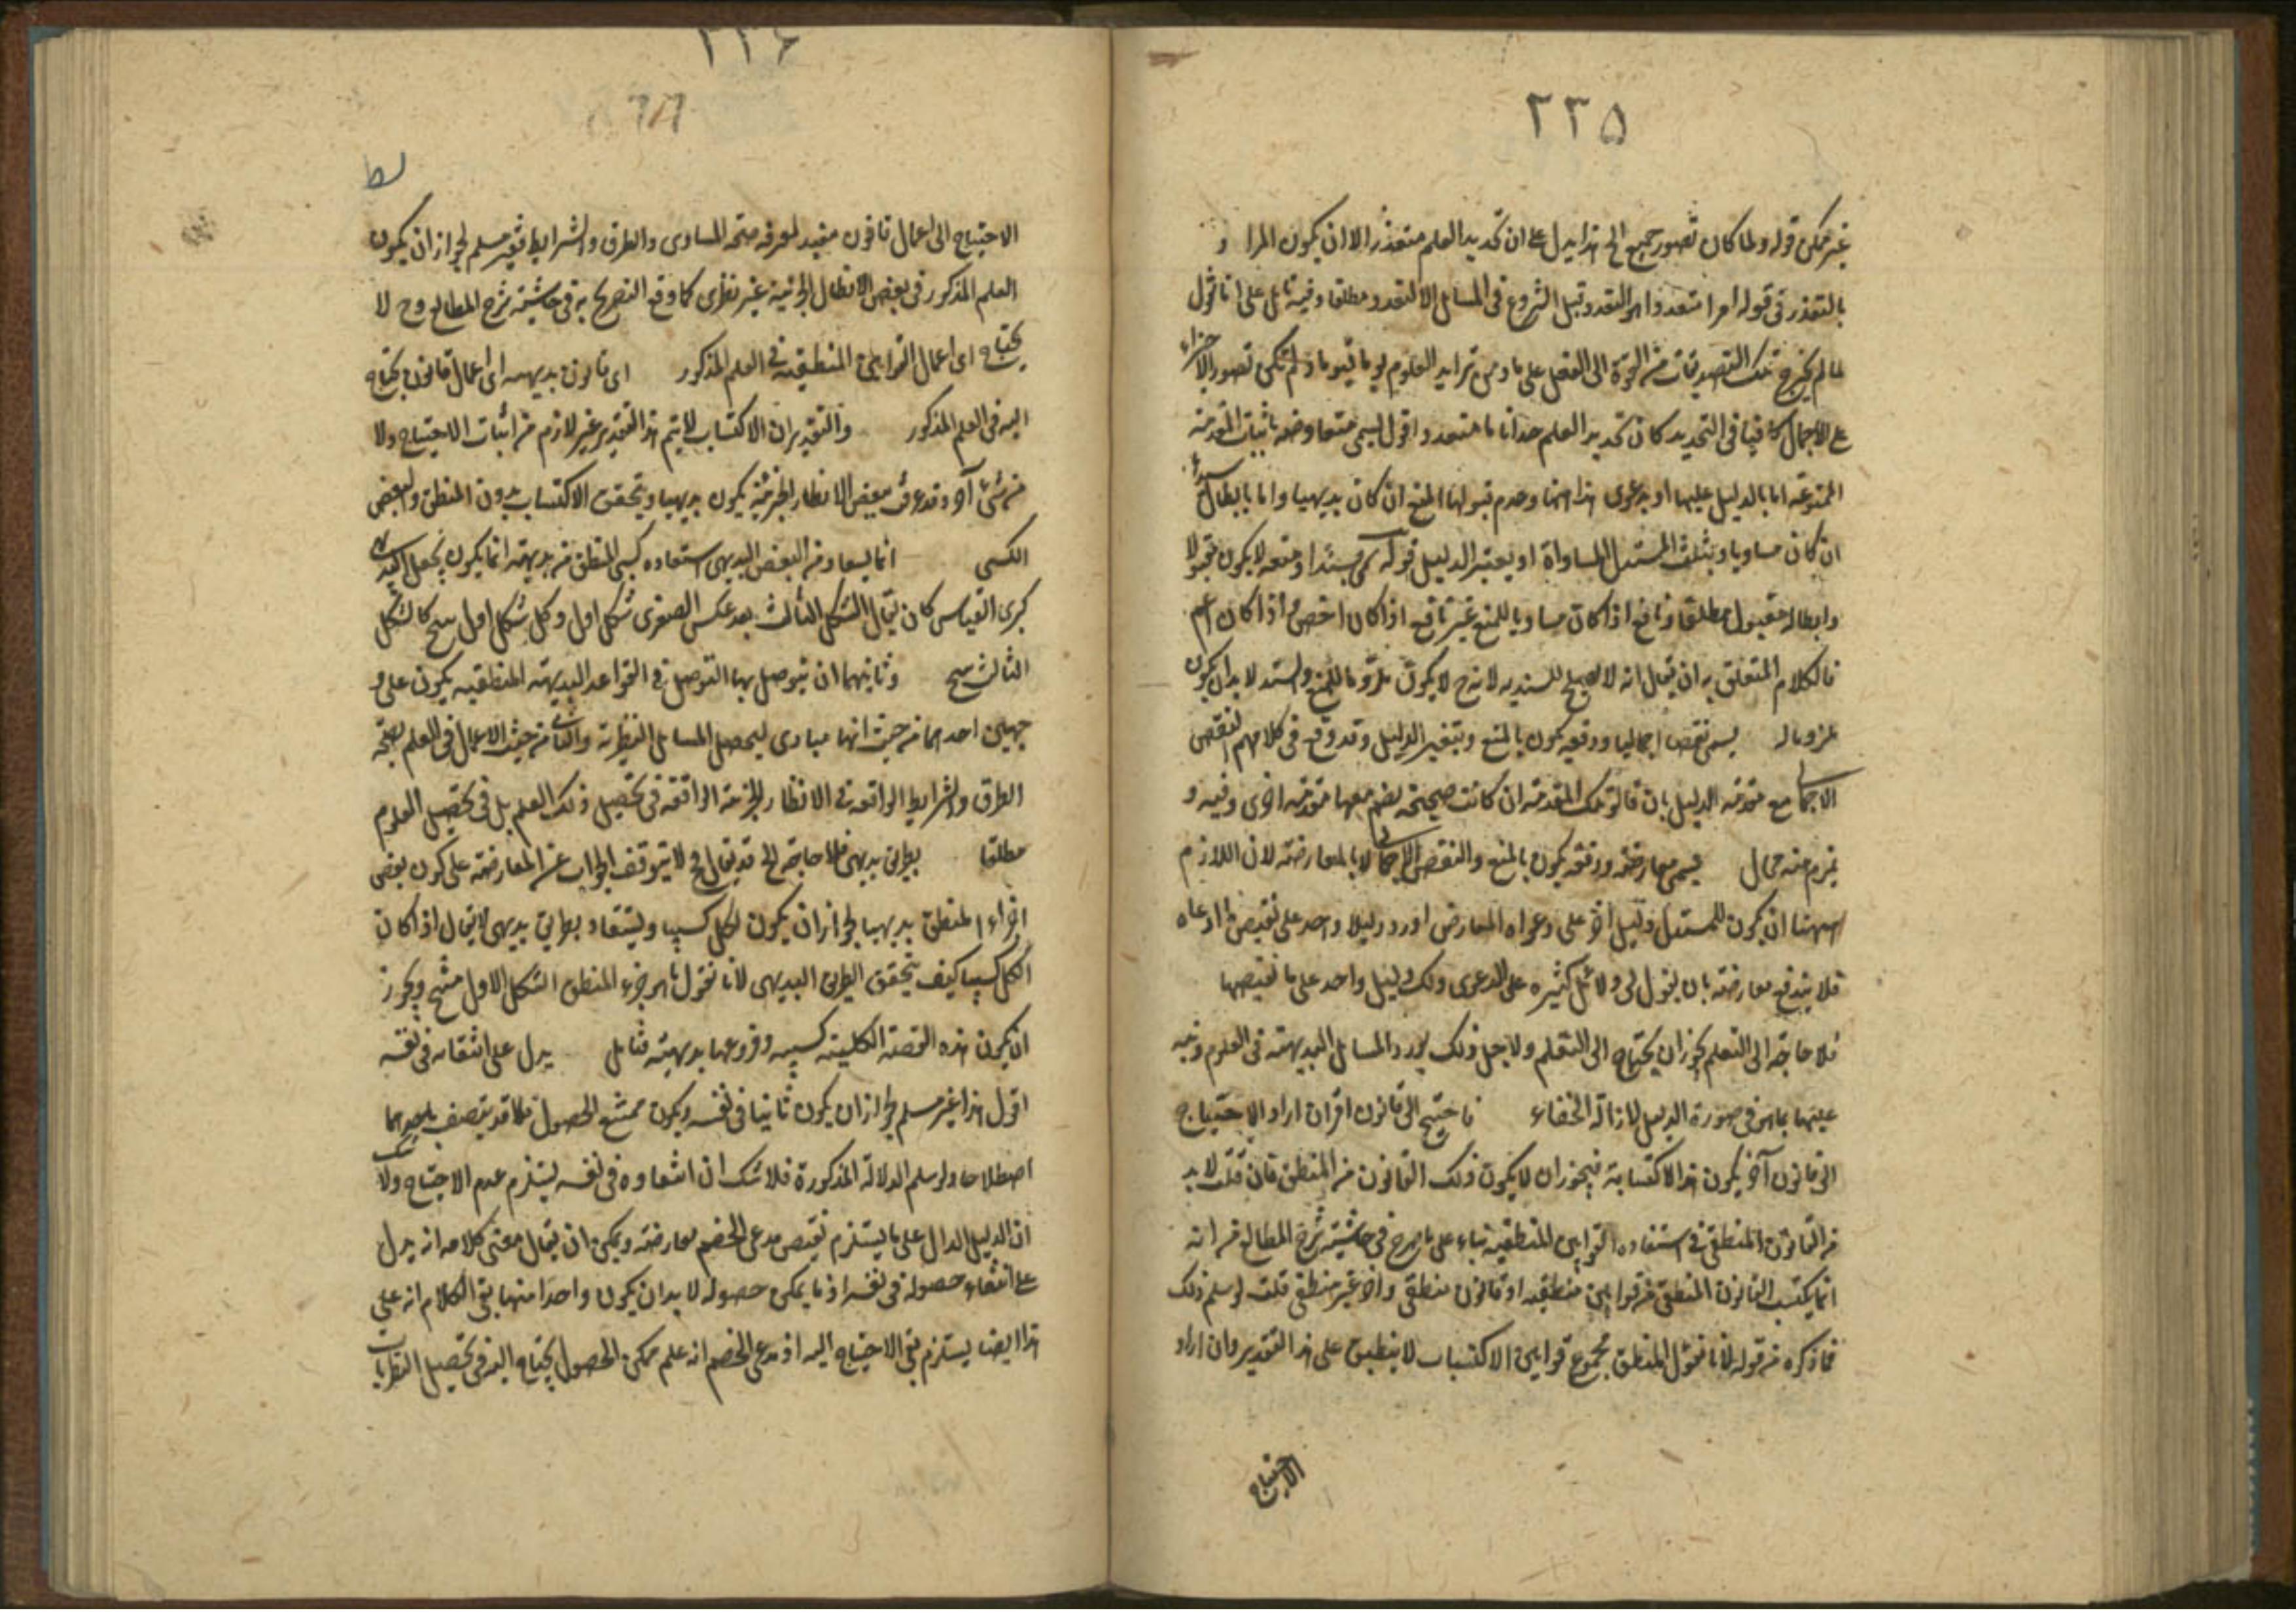 ٢٣٥
غير ممكن قوله ولما كان تصور جميع الخ هذا يدل على ان تحديد العلم متعذر الا ان يكون المراد
بالتعذر في قوله امرا متعذرا هو التعذر قبل الشروع في المسائل لا التعذر مطلقا وفيه تامل على انا نقول
لما لم يخرج تلك التصديقات من القوة الى الفعل على ما من تزايد العلوم يوما فيوما ولم يكن تصور الاجزاء
على الاجمال كافيا في التحديد كان تحديد العلم متعذرا اقول ليسمى متعاوضه باثبات المقدمة
الممنوعة اما بالدليل عليها او بدعوى بداهتها وعدم قبولها المنع ان كان بديهيا واما بابطال سنده
ان كان مساويا المساواة او يعتبر الدليل قوله لا يكون مقبولا
وابطاله مقبول مطلقا ونافع اذا كان مساويا للمنع غير نافع اذا كان اخص او اذا كان اعم
فالكلام المتعلق به ان يقال انه لا يصلح للسنديه لانه ح لا يكون ملزوما للمنع والسند لا بد ان يكون
ملزوما له يسمى نقضا اجماليا ودفعه يكون بالمنع وبتغيير الدليل وقد وقع في كلامهم النقض
الاجمالي مع مقدمة الدليل بان قالوا تلك المقدمة ان كانت صحيحة نضم معها مقدمة اخرى وفيه و
يلزم منه محال يسمى معارضه ودفعه يكون بالمنع والنقض الاجمالي لا بالمعارضة لان اللازم
ههنا ان يكون للمستدل دليل اخر على دعواه المعارض اورد دليلا واحد على نقيض ما ادعاه
فلا يندفع معارضته بان يقول لى دلائل كثيره على الدعوى ولك دليل واحد على ما نقيضها
فلا حاجة الى التعلم يجوز ان يحتاج الى التعلم ولاجل ذلك يورد المسائل البديهية في العلوم وينبه
عليها بما هو في صورة الدليل لازالة الخفاء فاحتيج الى قانون اقول ان اراد الاحتياج
الى قانون آخر يكون هذا لاكتسابه فيجوز ان لا يكون ذلك القانون من المنطق فان قلت لا بد
من القانون المنطقي في استفاده القوانين المنطقية بناء على ما صرح في حاشيته شرح المطالع من انه
انما يكتسب القانون المنطقي من قوانين منطقيه او قانون منطقي واخر غير منطقي قلت لو سلم ذلك
فما ذكره من قوله لانا نقول المنطق مجموع قوانين الاكتساب لا ينطبق على هذا التقدير وان اراد
الاحتياج
٢٣٦
الاحتياج الى اعمال قانون مفيد لمعرفه صحة المبادى والطرق والشرايط فغير مسلم لجواز ان يكون
العلم المذكور في بعض الانظار الجزئية غير نظرى كما وقع التصريح به في حاشيته شرح المطالع وح لا
يحتاج اى اعمال القوانين المنطقية في العلم المذكور اى قانون بديهيه اى اعمال قانون يحتاج
اليه في العلم المذكور والتقدير ان الاكتساب لا يتم هذا التقدير غير لازم من اثبات الاحتياج ولا
من شئ آخر وقد عرفت بعض الانظار الجزئية يكون بديهيا ويتحقق الاكتساب بدون المنطق والبعض
الكسبى انما يستفاد من البعض البديهى استفاده كسبى المنطق من بديهيته انما يكون بجعل البديهى
كبرى القياس كان يقال الشكل الثالث بعد عكس الصغرى شكل اول وكل شكل اول منتج كالشكل
الثالث منتج وثانيهما ان يتوصل بها التوصل في القواعد البديهيه المنطقيه يكون على و
جهين احدهما من حيث انها مبادى ليحصل المسائل النظرية والثانى من حيث الاعمال في العلم بصحة
الطرق والشرايط الواقعة في الانظار الجزئية الواقعة في تحصيل ذلك العلم بل في تحصيل العلوم
مطلقا بطريق بديهى فلا حاجة الخ قد يقال لا يتوقف الجواب عن المعارضة على كون بعض
اجزاء المنطق بديهيا لجواز ان يكون الكل كسبيا ويستفاد بطريق بديهى لا يقال اذا كان
الكل كسبيا كيف يتحقق الطريق البديهى لانا نقول ما هو جزء المنطق الشكل الاول منتج ويجوز
ان يكون هذه القضية الكلية كسبيه وفروعها بديهية فتامل يدل على انتفائه في نفسه
اقول هذا غير مسلم لجواز ان يكون ثابتا في نفسه ويكون ممتنع الحصول قد يتصف باحدهما
اصطلاحا ولو سلم الدلالة المذكورة فلا شك ان انتفاءه في نفسه يستلزم عدم الاحتياج ولا شك
ان الدليل الدال على ما يستلزم نقيض مدعى الخصم معارضة ويمكن ان يقال معنى كلامه انه يدل
على انتفاء حصوله في نفسه اذ ما يمكن حصوله لا بد ان يكون واحدا منها بقى الكلام انه على
هذا ايضا يستلزم نفى الاحتياج اليه اذ مدعى الخصم انه علم ممكن الحصول يحتاج اليه في تحصيل النظريات